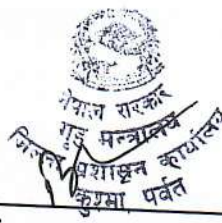 नेपाल सरकार
गृह मन्त्रालय
जिल्ला प्रशासन कार्यालय
कुश्मा पर्वत